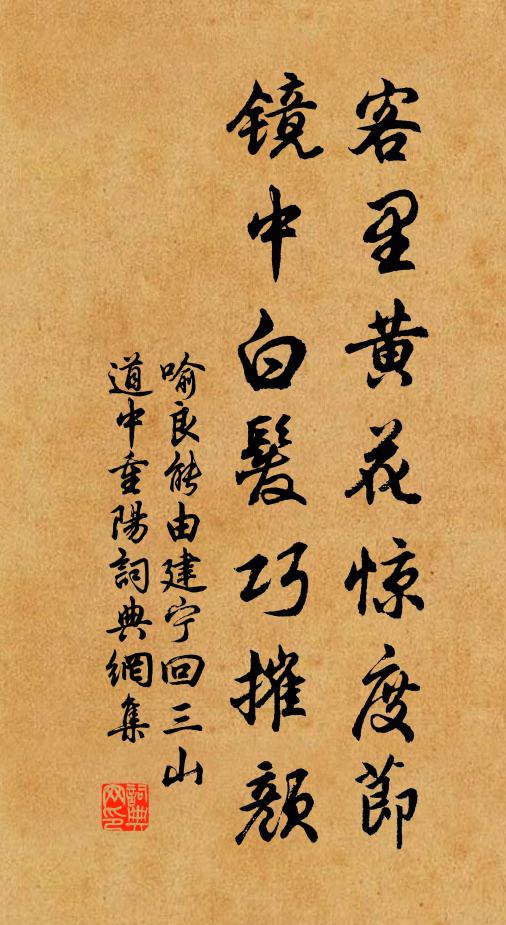 客里黄花惊度節
镜中白髮巧摧顔
喻良能由建宁回三山
道中重陽詞典網集
詞典
网印